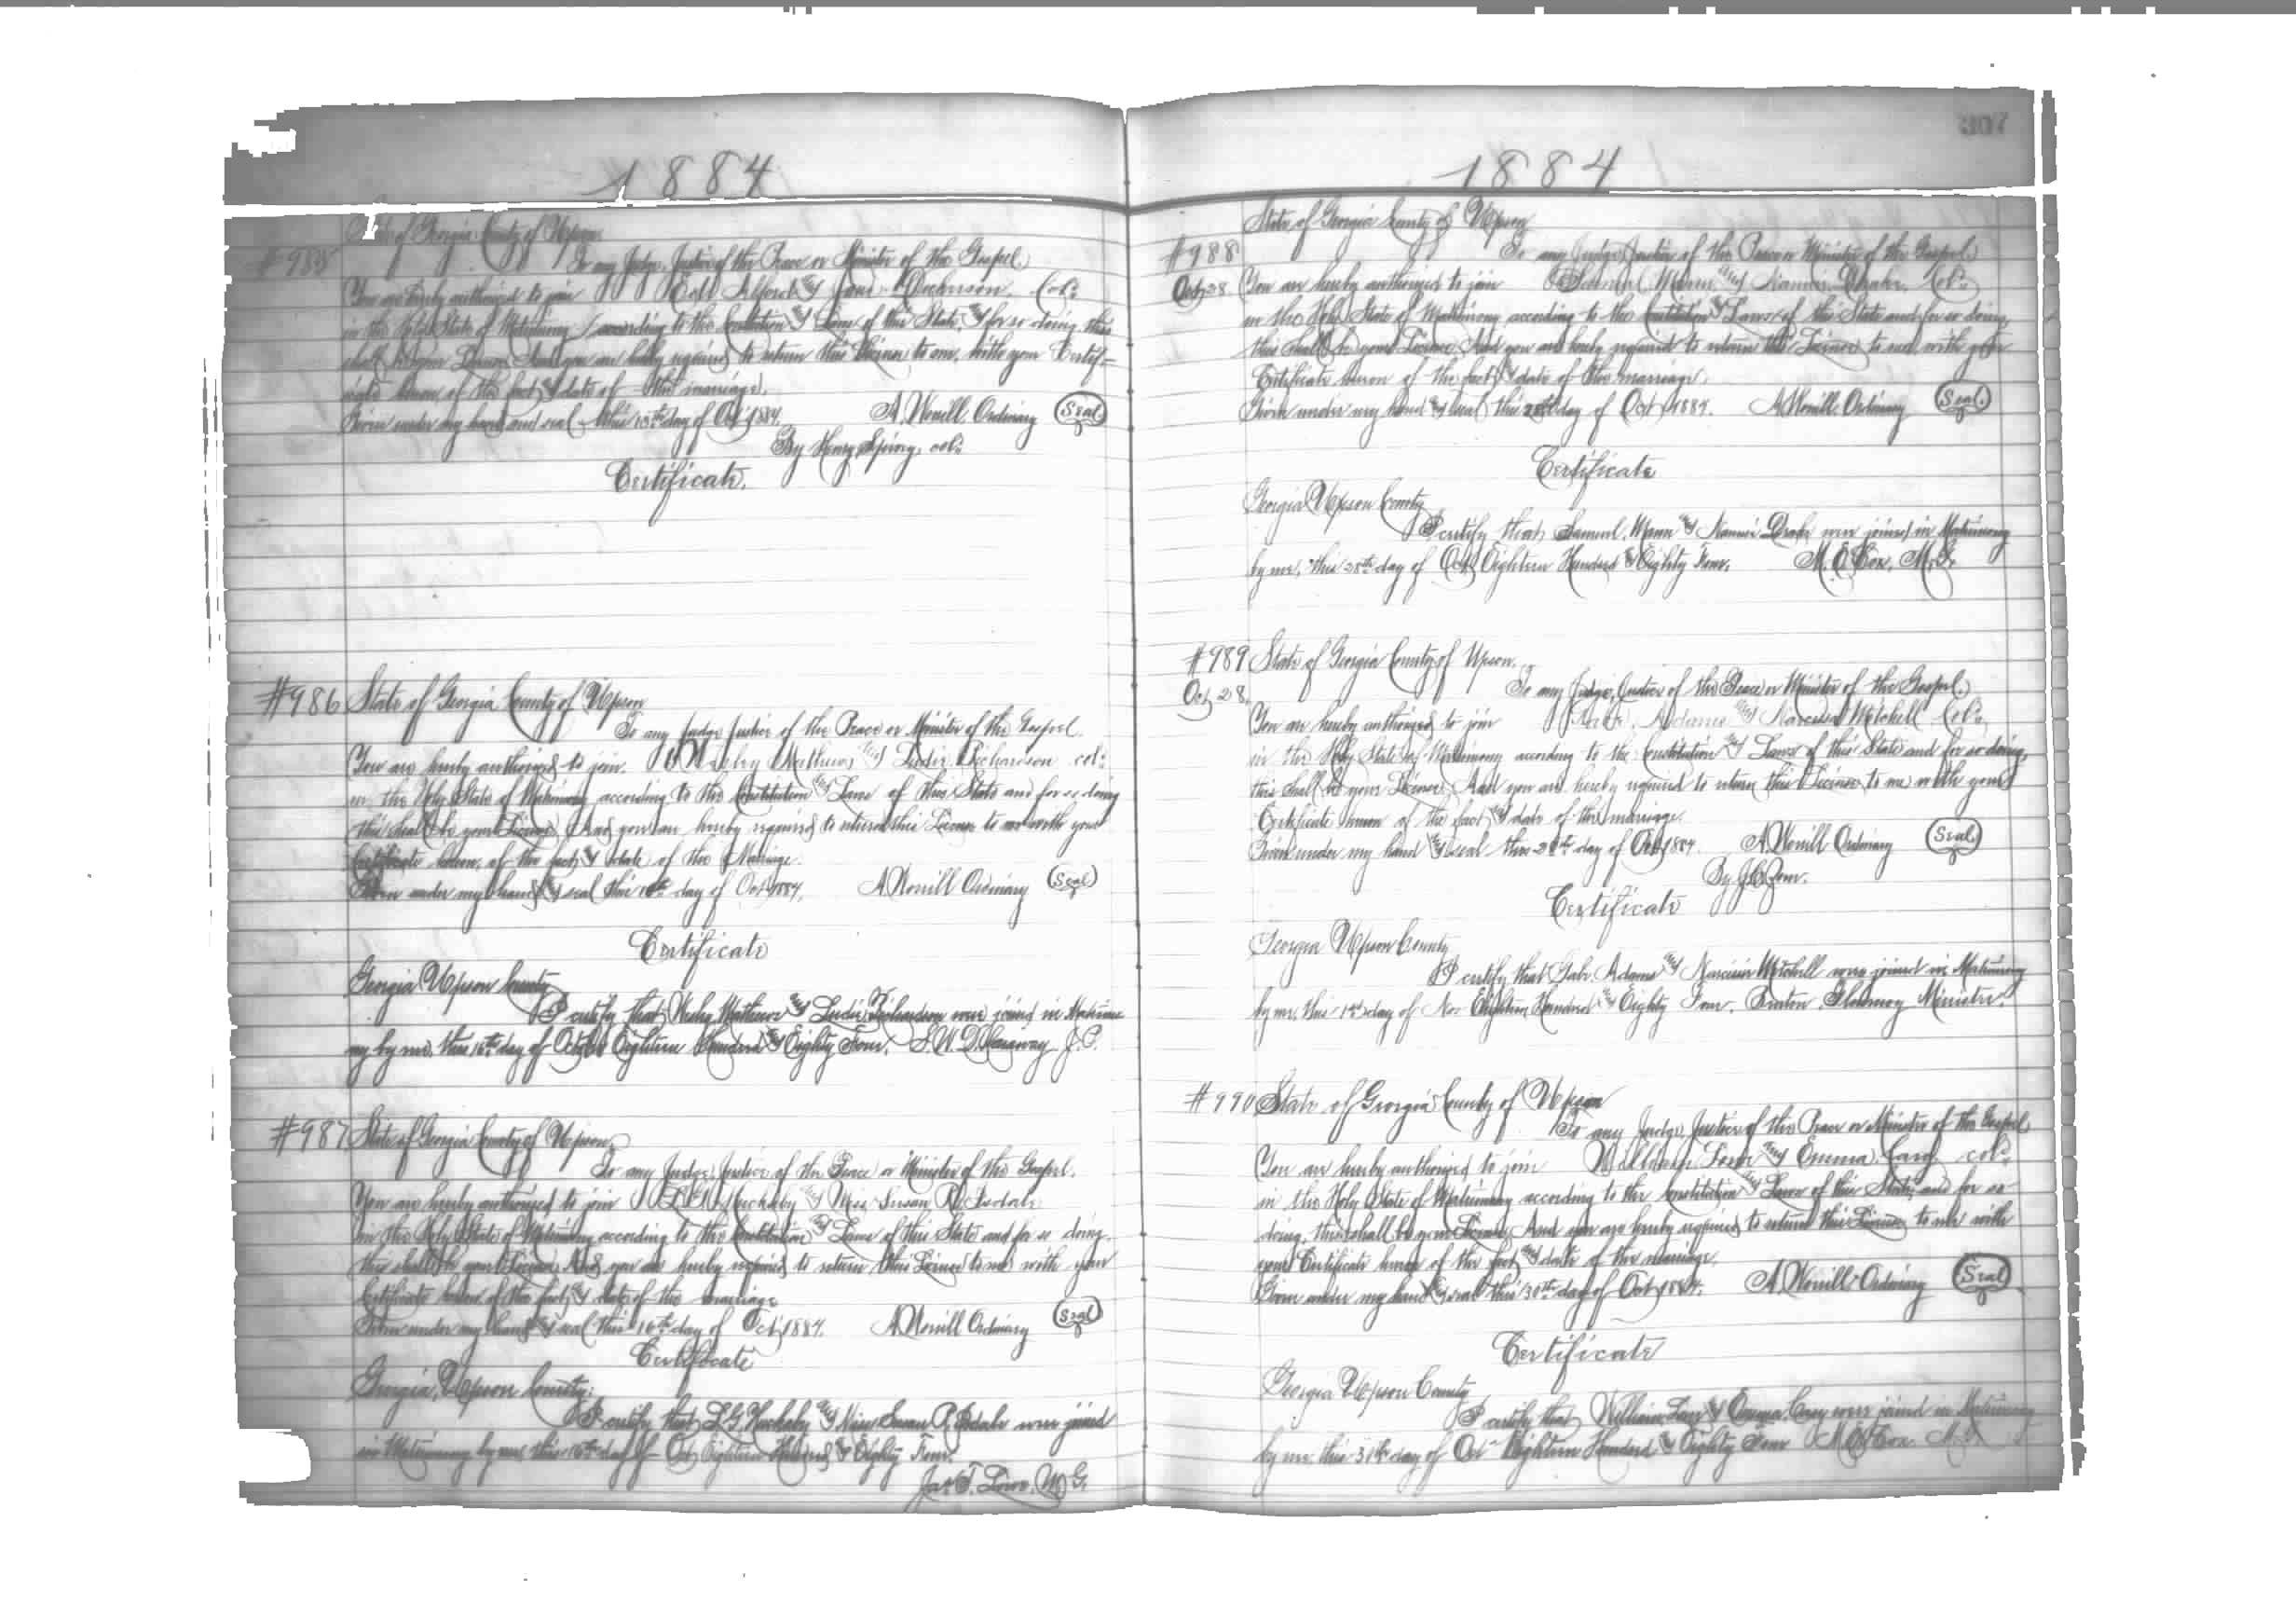 1884
State of Georgia County of Upson
#985
To any Judge, Justice of the Peace or Minister of the Gospel
You are hereby authorized to join Alford & Jane Dickinson, Col:
in the Holy State of Matrimony according to the Constitution & Laws of this State, & for so doing this
shall be your License, And you are hereby required to return this License to me, with your Certif-
icate hereon of the fact & date of the marriage.
Given under my hand and seal this day of Oct 1884. A Worrill Ordinary Seal
By Henry Spivey, col:
Certificate.
#986 State of Georgia County of Upson
To any Judge Justice of the Peace or Minister of the Gospel.
You are hereby authorized to join Mathews & Richardson col:
in the Holy State of Matrimony according to the Constitution & Laws of this State and for so doing
this shall be your License, And you are hereby required to return this License to me with your
Certificate hereon, of the fact & date of the Marriage.
Given under my hand & seal this 16th day of Oct 1884. A Worrill Ordinary Seal
Certificate
Georgia Upson County
I certify that Mathews & Richardson were joined in Matrimo
ny by me, this 16th day of October Eighteen Hundred & Eighty Four. J.P.
#987 State of Georgia County of Upson
To any Judge, Justice of the Peace or Minister of the Gospel.
You are hereby authorized to join Huckaby & Miss Susan
in the Holy State of Matrimony according to the Constitution & Laws of this State and for so doing,
this shall be your License, And you are hereby required to return this License to me with your
Certificate hereon of the fact & date of the marriage
Given under my hand & seal this 16th day of Oct 1884. A Worrill Ordinary Seal
Certificate
Georgia, Upson County:
I certify that L.G. Huckaby & Miss Susan were joined
in Matrimony by me this 16th day of Oct Eighteen Hundred & Eighty Four.
Jas. T. Lowe, M G.
1884
State of Georgia County of Upson
#988
To any Judge, Justice of the Peace or Minister of the Gospel
Oct 28 You are hereby authorized to join Samuel Mann & Nannie Drake, Col:
in the Holy State of Matrimony according to the Constitution & Laws of this State and for so doing,
this shall be your License, And you are hereby required to return this License to me, with your
Certificate hereon of the fact & date of the marriage.
Given under my hand & seal this 28th day of Oct 1884. A Worrill Ordinary Seal.
Certificate
Georgia Upson County
I certify that Samuel Mann & Nannie Drake were joined in Matrimony
by me, this 28th day of Oct Eighteen Hundred & Eighty Four. Cox, M.G.
#989 State of Georgia County of Upson.
To any Judge, Justice of the Peace or Minister of the Gospel.
Oct 28, You are hereby authorized to join Gabe Adams & Narcissa Mitchell Col:
in the Holy State of Matrimony according to the Constitution & Laws of this State and for so doing,
this shall be your License, And you are hereby required to return this License to me with your
Certificate hereon of the fact & date of the marriage.
Given under my hand & seal this 28th day of Oct 1884. A Worrill Ordinary Seal.
Certificate
Georgia Upson County
I certify that Gabe Adams & Narcissa Mitchell were joined in Matrimony
by me, this 1st day of Nov Eighteen Hundred & Eighty Four. Minister
#990 State of Georgia County of Upson
To any Judge, Justice of the Peace or Minister of the Gospel,
You are hereby authorized to join William & Emma Cary col:
in the Holy State of Matrimony according to the Constitution & Laws of this State, and for so
doing, this shall be your License, And you are hereby required to return this License to me with
your Certificate hereon of the fact & date of the marriage,
Given under my hand & seal this 30th day of Oct 1884. A Worrill Ordinary Seal
Certificate
Georgia Upson County
I certify that William & Emma Cary were joined in Matrimony
by me, this day of Oct Eighteen Hundred & Eighty Four Cox